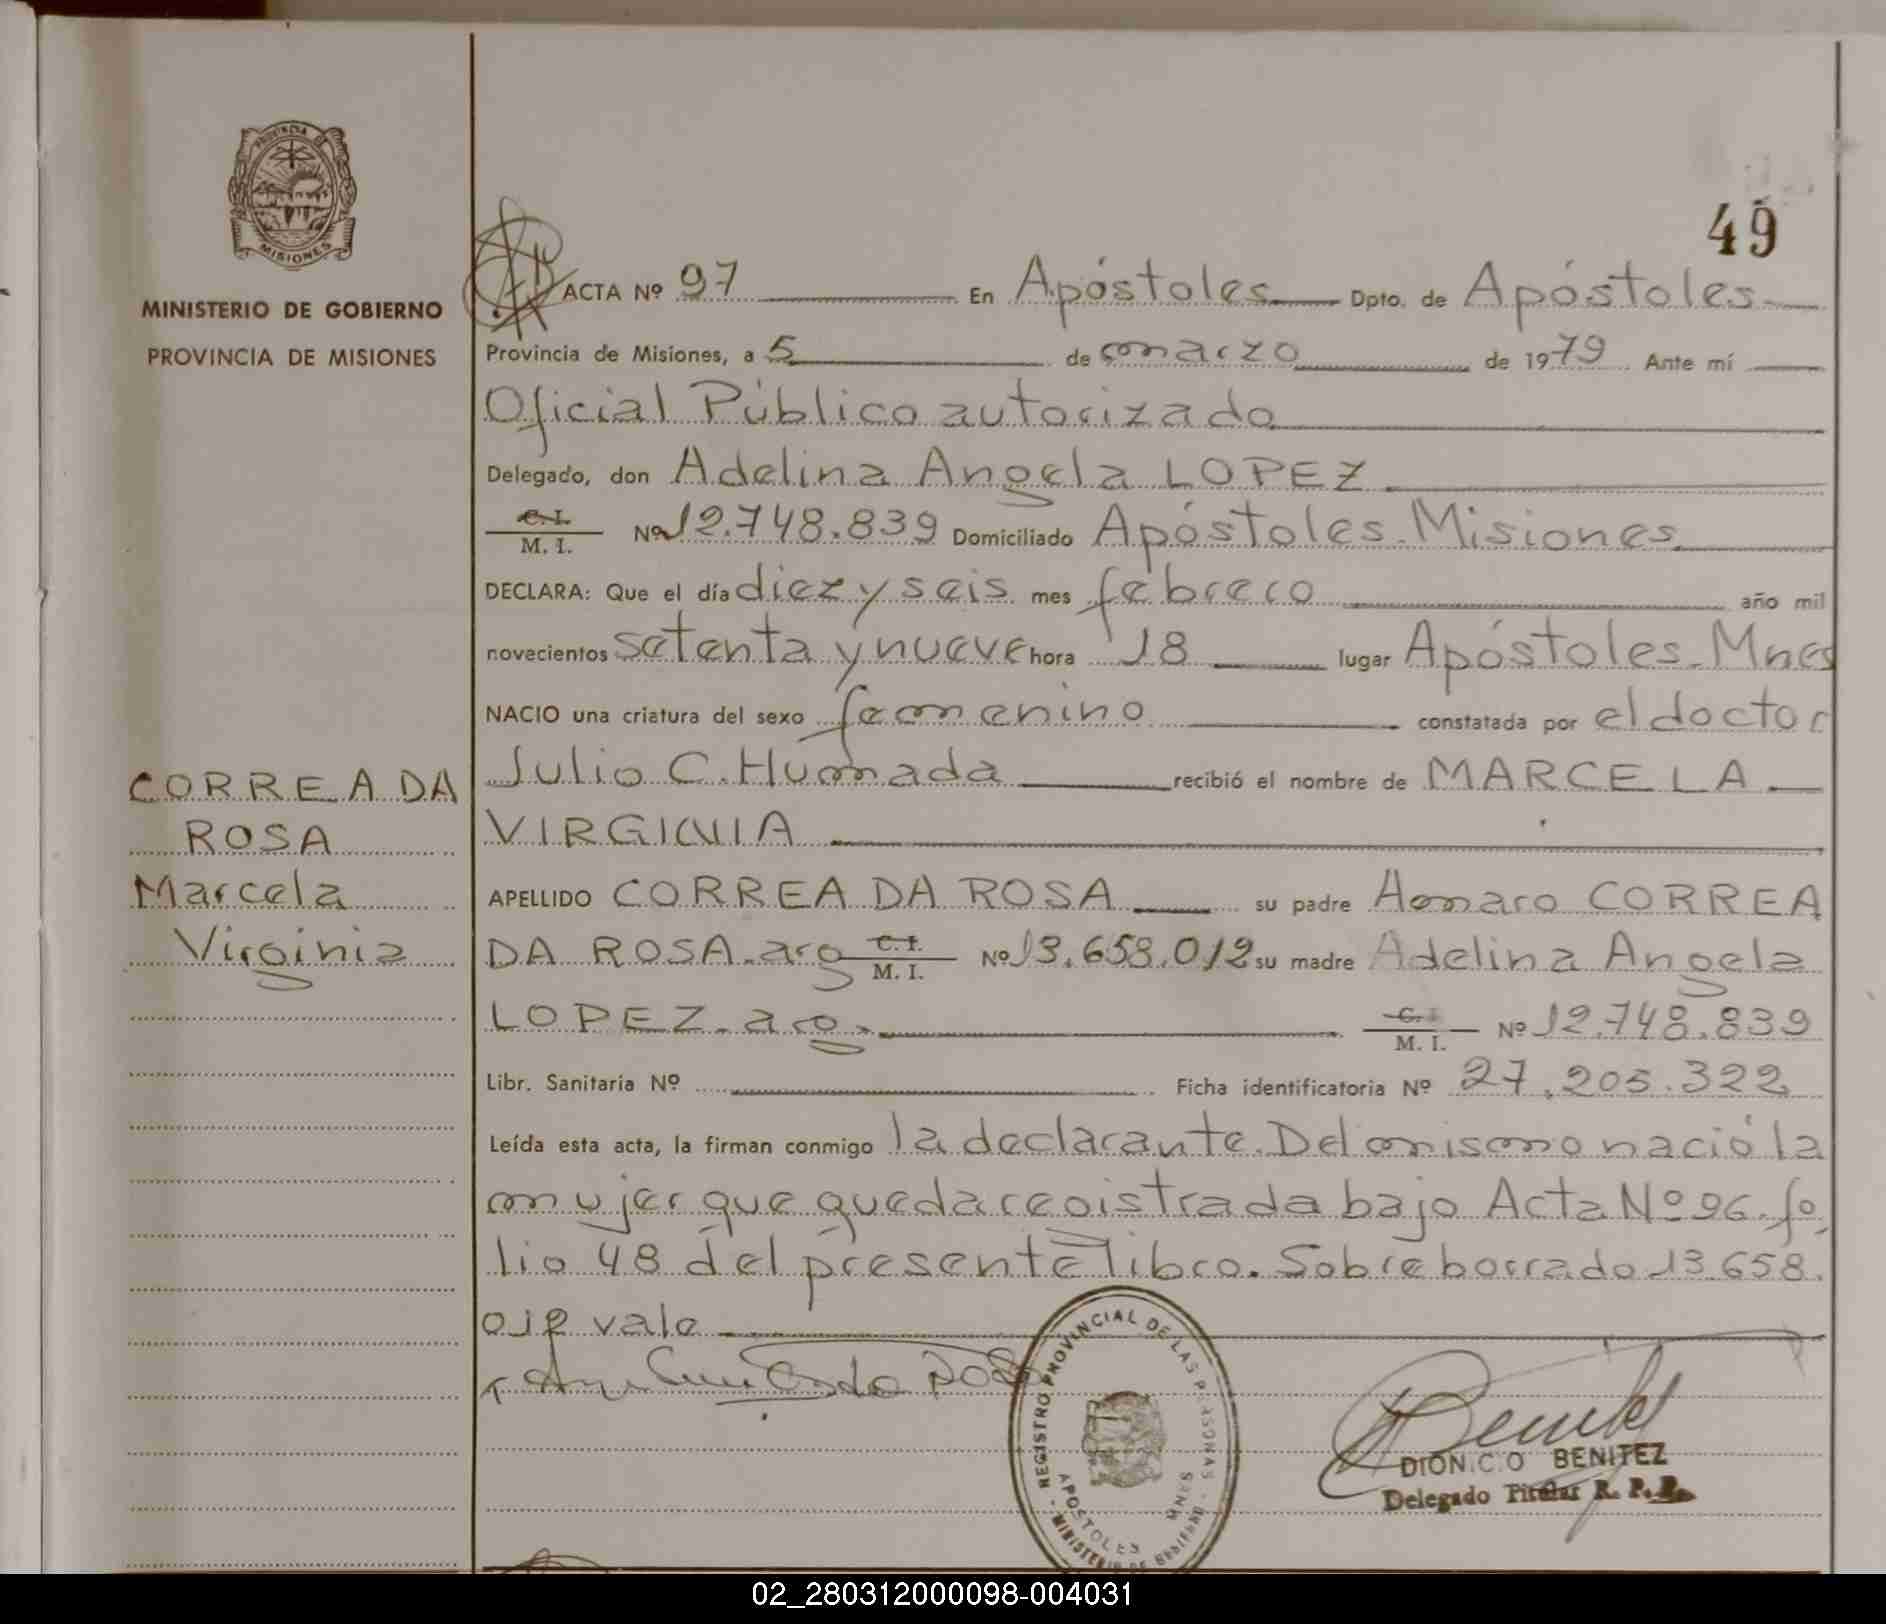 PROVINCIA DE
MISIONES
MINISTERIO DE GOBIERNO
PROVINCIA DE MISIONES
49
ACTA Nº 97 En Apóstoles Dpto. de Apóstoles
Provincia de Misiones, a 5 de marzo de 1979 Ante mí
Oficial Público autorizado
Delegado, don Adelina Angela LOPEZ
C. I.
M. I. Nº 12.748.839 Domiciliado Apóstoles. Misiones
DECLARA: Que el día diez y seis mes febrero año mil
novecientos setenta y nueve hora 18 lugar Apóstoles. Mnes
NACIO una criatura del sexo femenino constatada por el doctor
Julio C. Humada recibió el nombre de MARCELA
VIRGINIA
CORREA DA
ROSA
Marcela
Virginia
APELLIDO CORREA DA ROSA su padre CORREA
DA ROSA. arg C. I.
M. I. Nº 13.658.012 su madre Adelina Angela
LOPEZ. arg. C. I.
M. I. Nº 12.748.839
Libr. Sanitaria Nº Ficha identificatoria Nº 27.205.322
Leída esta acta, la firman conmigo la declarante. Del mismo nació la
mujer que queda registrada bajo Acta Nº 96. fo
lio 48 del presente libro. Sobre borrado 13.658.
012 vale
REGISTRO PROVINCIAL DE LAS PERSONAS
APOSTOLES MNES
MINISTERIO DE GOBIERNO
Benitez
DIONICIO BENITEZ
Delegado Titular R. P. P.
02_280312000098-004031